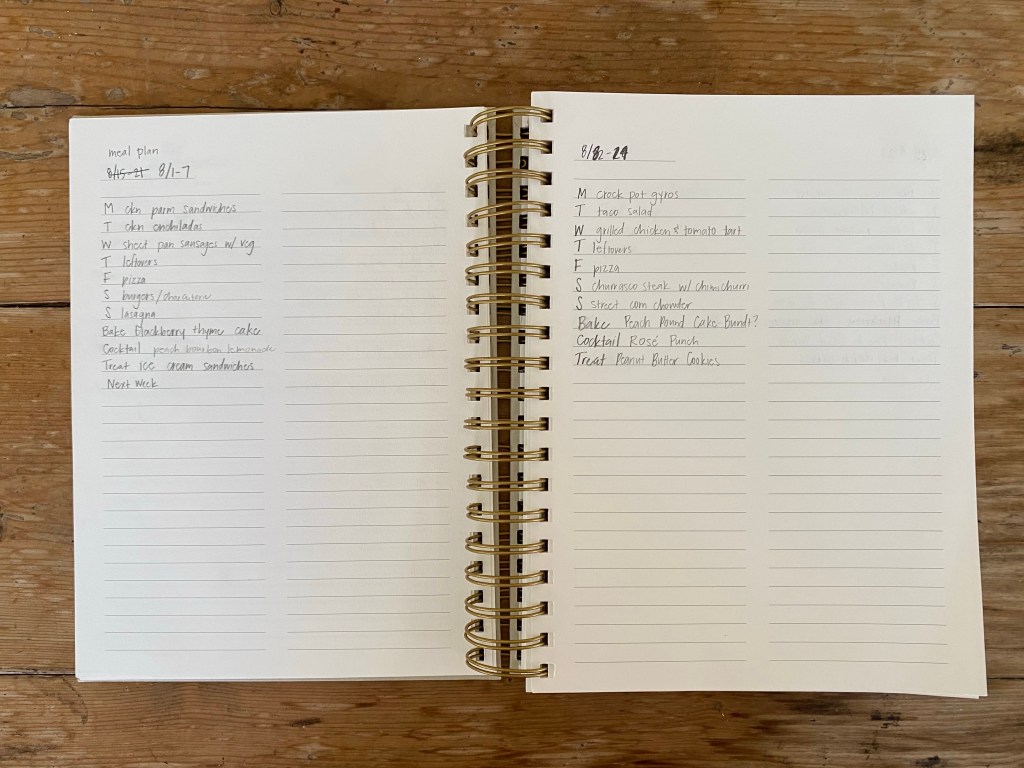 meal plan
8/15-21 8/1-7
M ckn parm sandwiches
T ckn enchiladas
W sheet pan sausages w/ veg
T leftovers
F pizza
S burgers/charcuterie
S lasagna
Bake Blackberry thyme cake
Cocktail peach bourbon lemonade
Treat Ice cream sandwiches
Next Week
M crock pot gyros
T taco salad
W grilled chicken & tomato tart
T leftovers
F pizza
S churrasco steak w/ chimichurri
S street corn chowder
Bake Peach Pound Cake Bundt?
Cocktail Rosé Punch
Treat Peanut Butter Cookies